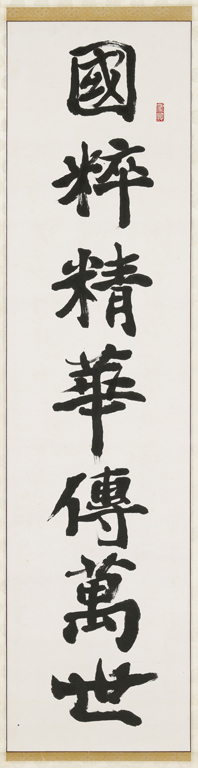 國粹精華傳萬世